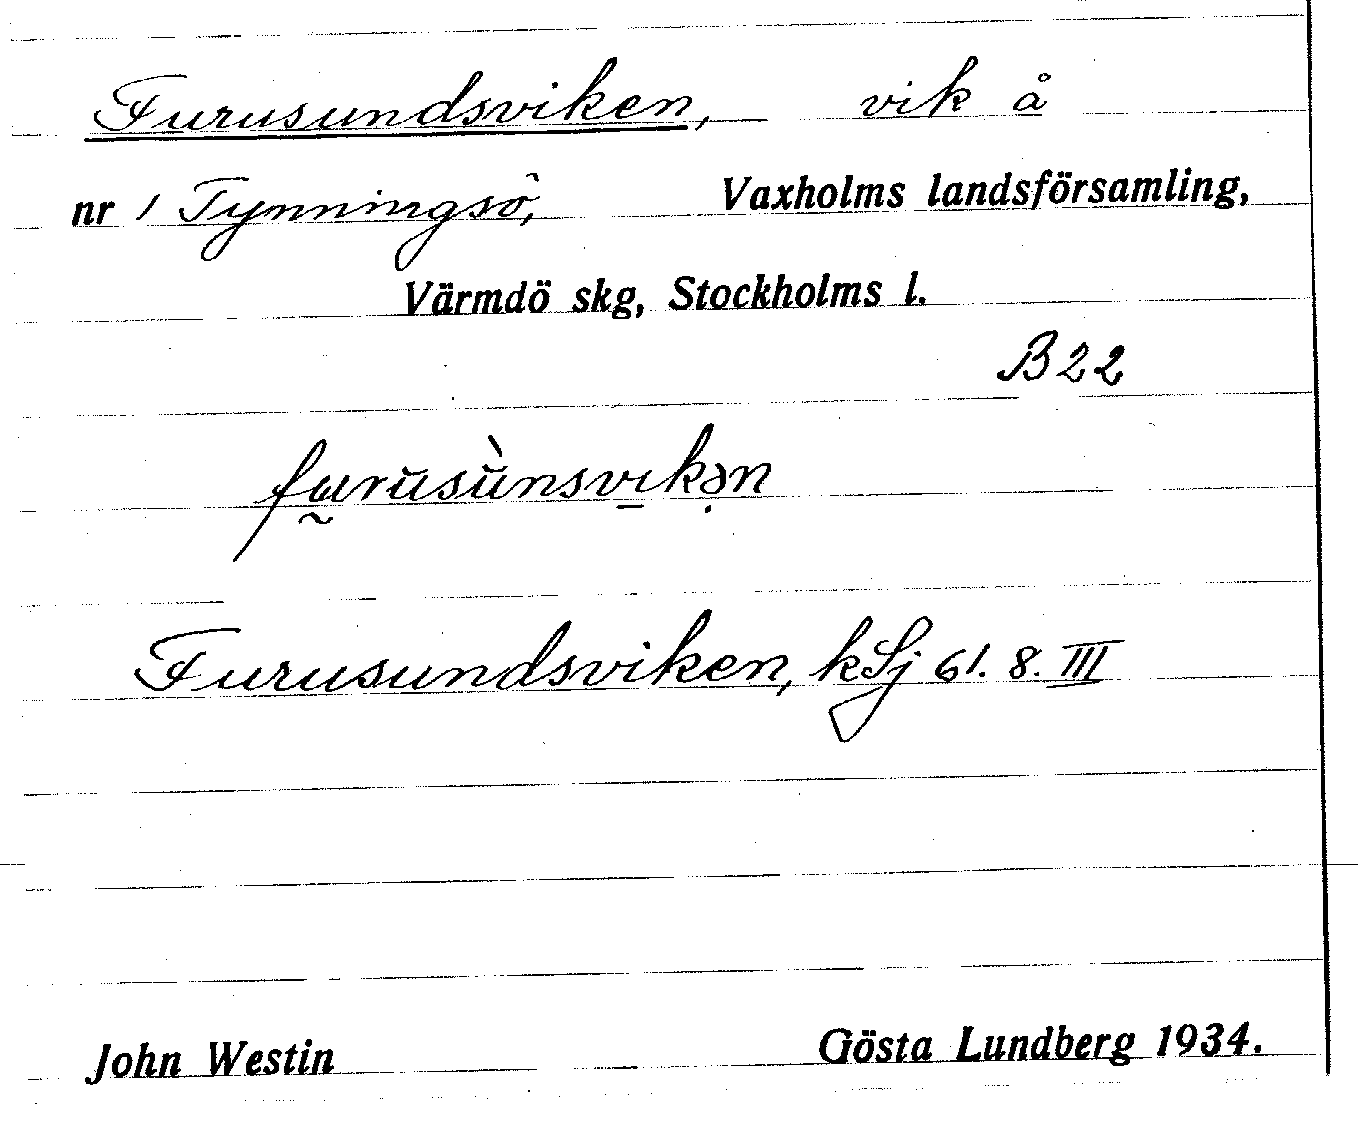 Furusundsviken, vik å
nr 1 Tynningsö, Vaxholms landsförsamling,
Värmdö skg, Stockholms l.
B22
Furusundsviken, kSj 61. 8. III
John Westin Gösta Lundberg 1934.